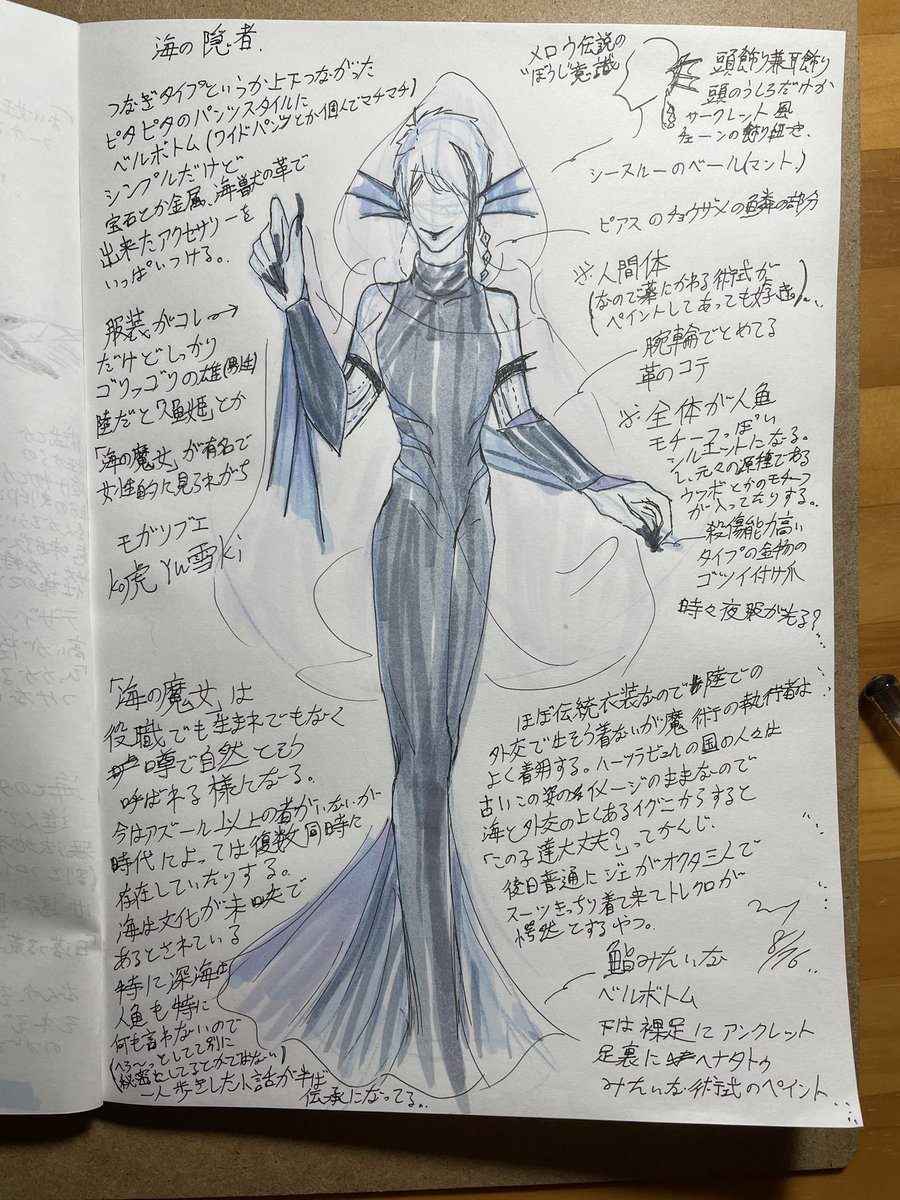 海の隠者.
つなぎタイプというか上下つながった
ピタピタのパンツスタイルに
ベルボトム(ワイドパンツとか個人でマチマチ)
シンプルだけど
宝石とか金属、海獣の革で
出来たアクセサリーを
いっぱいつける。
服装がコレ→
だけどしっかり
ゴリッゴリの雄(男性)
陸だと「人魚姫」とか
「海の魔女」が有名で
女性的に見られがち
モガリブエ
ko虎 Yu雪ki
「海の魔女」は
役職でも生まれでもなく
噂で自然とそう
呼ばれる様になる。
今はアズール以上の者がいないが
時代によっては複数同時に
存在していたりする。
海は文化が未
あるとされている
特に深海
人魚も特に
何も言わないので
(へろ〜っとしてて別に
秘密にしてるとかではない)
一人歩きした小話が半ば
伝承になってる。
メロウ伝説の
"ぼうし"意識
頭飾り兼耳飾り
頭のうしろだけか
サークレット風
チェーンの飾り紐き.
シースルーのベール(マント)
ピアスのチョウザメの鱗の部分
※人間体
(なので薬にかわる術式が
ペイントしてあっても好き。)
腕輪でとめてる
革のコテ
※全体が人魚
モチーフっぽい
シルエットになる。
元々の源種である
ウツボとかのモチーフ
が入ってたりする。
殺傷能力高い
タイプの金物の
ゴツイ付け爪
時々夜服が光る?
ほぼ伝統衣装なので陸での
外交で出そう着ないが魔術の執行者は
よく着用する。ハーツラビュルの国の人々は
古いこの姿のイメージのままなので
海と外交のよくあるイグニからすると
「この子達大丈夫?」ってかんじ.
後日普通にジェがオクタ三人で
スーツきっちり着て来てトレクロが
愕然とするやつ。
8/16
鮨みたいな
ベルボトム
下は裸足にアンクレット
足裏にヘナタトゥ
みたいな術式のペイント